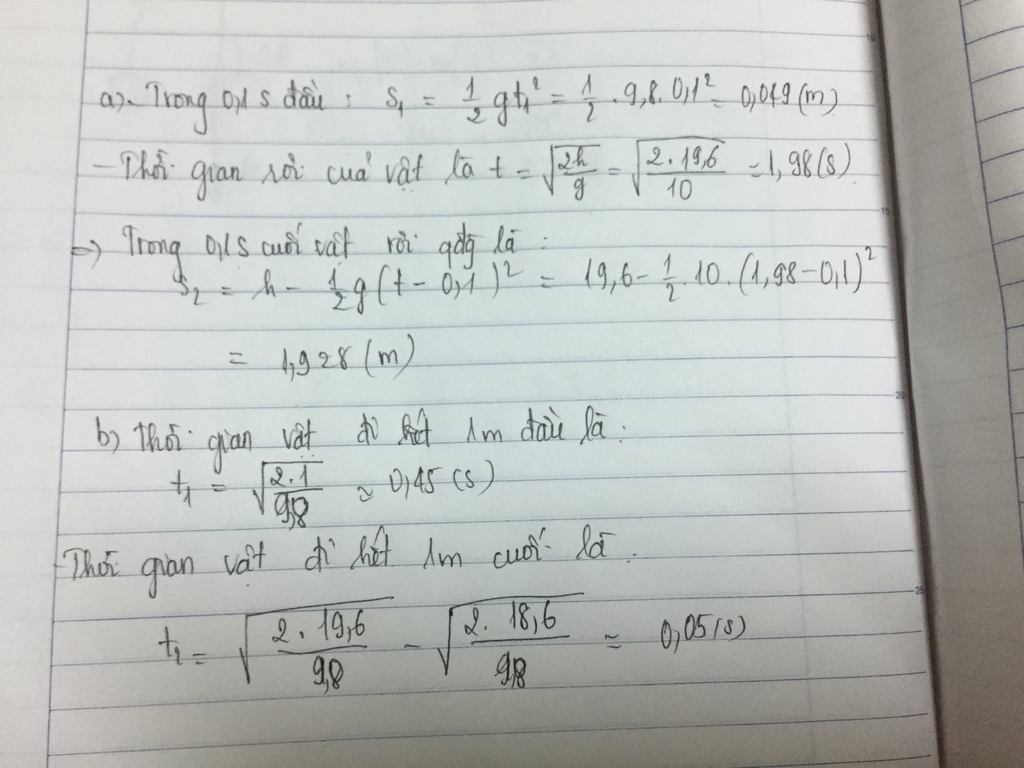 a). Trong 0,1 s đầu : S₁ = 1/2 gt₁² = 1/2 . 9,8. 0,1² = 0,049 (m)
- Thời gian rơi của vật là t = √(2h/g) = √(2.19,6/10) = 1,98(s)
=> Trong 0,1s cuối vật rơi qđg là :
S₂ = h - 1/2 g(t - 0,1)² = 19,6 - 1/2 . 10. (1,98 - 0,1)²
= 1,928 (m)
b) Thời gian vật đi hết 1m đầu là :
t₁ = √(2.1/9,8) ≈ 0,45 (s)
Thời gian vật đi hết 1m cuối là :
t₂ = √(2.19,6/9,8) - √(2.18,6/9,8) ≈ 0,05 (s)
10
15
20
25